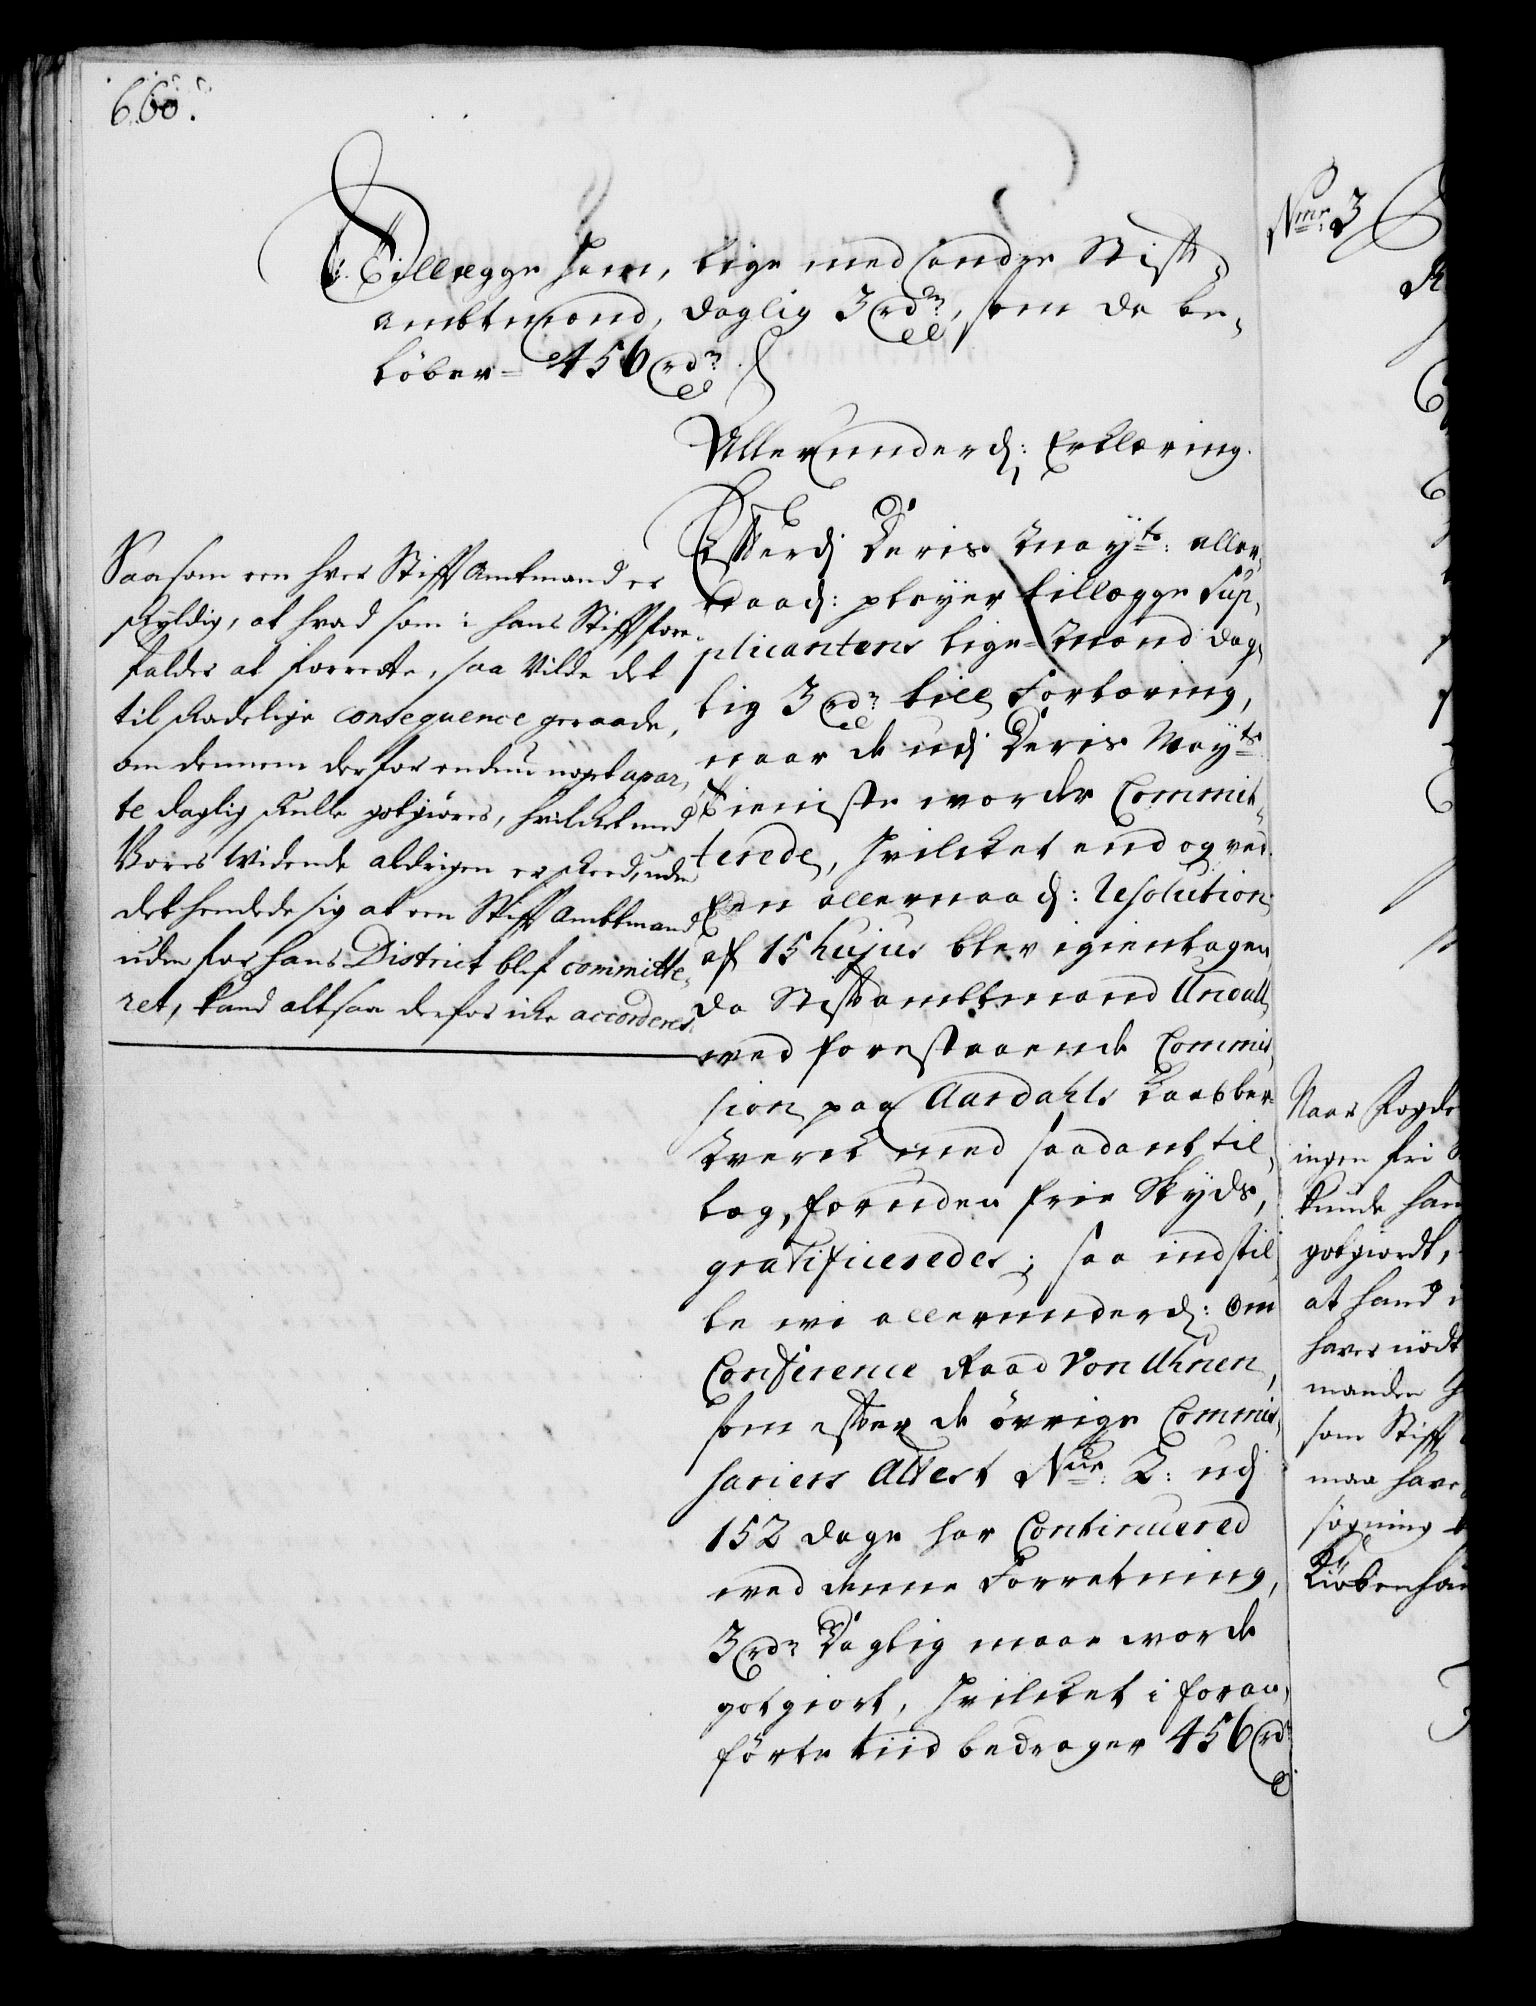 660.
Tillegge ham, lige med andre Stift-
ambtmænd, daglig 3 rdr, som da be-
löber = 456 rdr.
Allerunderd: Erklæring.
Efterdj Deris Mayts: aller-
naad: pleyer tillegge Sup-
plicantens lige-Mænd dag-
lig 3 rdr till Fortæring,
naar de udj Deris Mayts
Tieniste worder Commit-
terede, hvilcket end og ved
Den allernaad: Resolution
af 15 hujus blev igientagen
da Stiftambtmand Undall
wed forestaaende Commis-
sion paa Aardahls Kaabber-
werck med saadant til-
læg, foruden frie Skyds,
gratificeredes; saa indstil-
le wi allerunderd: om
Conference Raad Von Uhnen,
som efter de övrige Commis-
sariers Attest Nr. 2: udj
152 dage har Continuered
wed denne Forretning,
3 rdr Daglig maae worde
gotgiort, hvilcket i foran-
förte tiid bedrager 456 rdr
Saasom een hver Stiff Amtmand er
skyldig, at hvad som i hans Stiff fore-
falder at forrette, saa Vilde det
til skadelige consequence geraade,
om dennem derfor endnu noget apar-
te daglig skulle gotgiöres, hvilcket med
Vores Widende aldrigen er skeed, uden
det hendede sig at een Stiff Ambtmand
uden for hans District blef committe-
ret, kand altsaa derfor icke accorderes.
Nmr. 3
Naar Fogde
ingen fri
kunde han
gotgiordt,
at hand
haver nödt
manden
som Stiff
maa have
søgning
Kiøbenhav